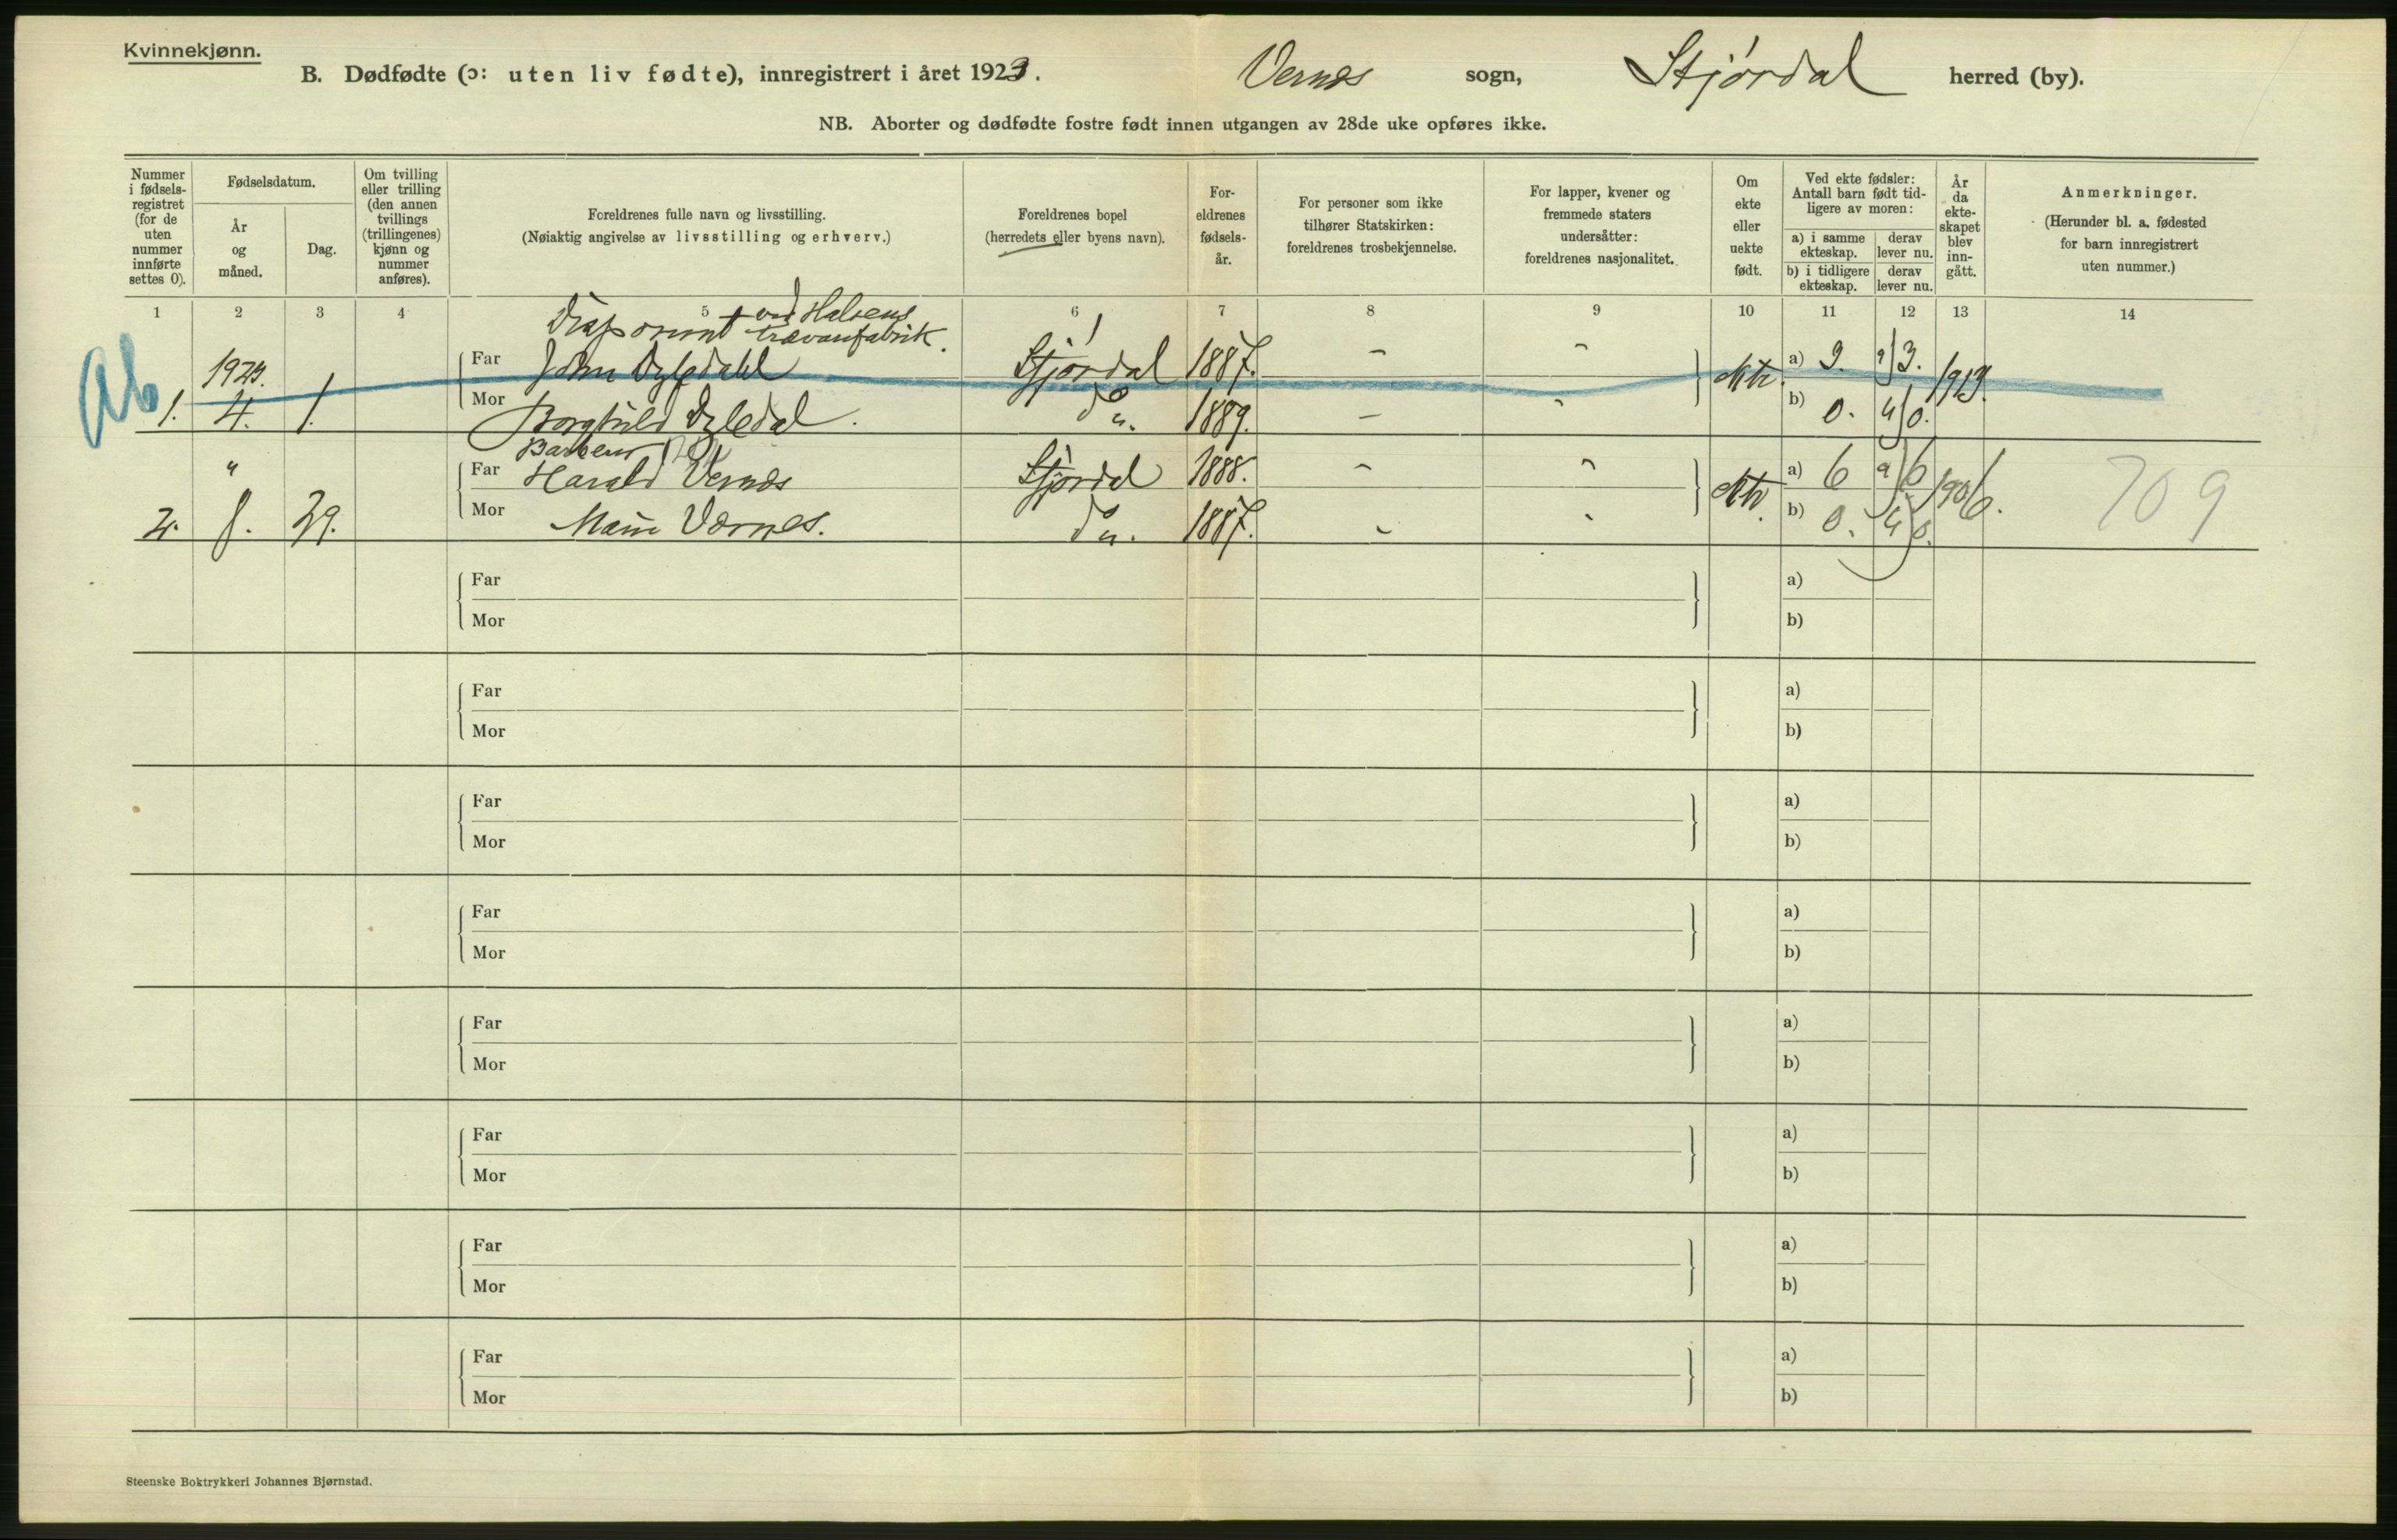 Kvinnekjønn.
B. Dødfødte (ɔ: uten liv fødte), innregistrert i året 1923. Vernes sogn, Stjørdal herred (by).
NB. Aborter og dødfødte fostre født innen utgangen av 28de uke opføres ikke.
Nummer i fødsels-registret (for de uten nummer innførte settes 0).
Fødselsdatum.
År og måned.
Dag.
Om tvilling eller trilling (den annen tvillings (trillingenes) kjønn og nummer anføres).
Foreldrenes fulle navn og livsstilling.
(Nøiaktig angivelse av livsstilling og erhverv.)
Foreldrenes bopel
(herredets eller byens navn).
For-eldrenes fødsels-år.
For personer som ikke tilhører Statskirken: foreldrenes trosbekjennelse.
For lapper, kvener og fremmede staters undersåtter: foreldrenes nasjonalitet.
Om ekte eller uekte født.
Ved ekte fødsler: Antall barn født tid-ligere av moren:
a) i samme ekteskap. derav lever nu.
b) i tidligere ekteskap. derav lever nu.
År da ekte-skapet blev inn-gått.
Anmerkninger.
(Herunder bl. a. fødested for barn innregistrert uten nummer.)
1 2 3 4 5 6 7 8 9 10 11 12 13 14
ved Halsens
Disponent trævarefabrik.
Ab
1923. Far John Stjørdal 1887. - - a) 3. a) 3.
1. 4. 1. Mor Borghild do. 1889. - - ekte. b) 0. b) 0. 1913.
" Far Harald Vernes Stjørdal 1888. - - a) 6 a) 6
2. 8. 29. Mor Marie Værnes. do. 1887. - - ekte. b) 0. b) 0. 1906. 709
Far a)
Mor b)
Far a)
Mor b)
Far a)
Mor b)
Far a)
Mor b)
Far a)
Mor b)
Far a)
Mor b)
Far a)
Mor b)
Far a)
Mor b)
Steenske Boktrykkeri Johannes Bjørnstad.